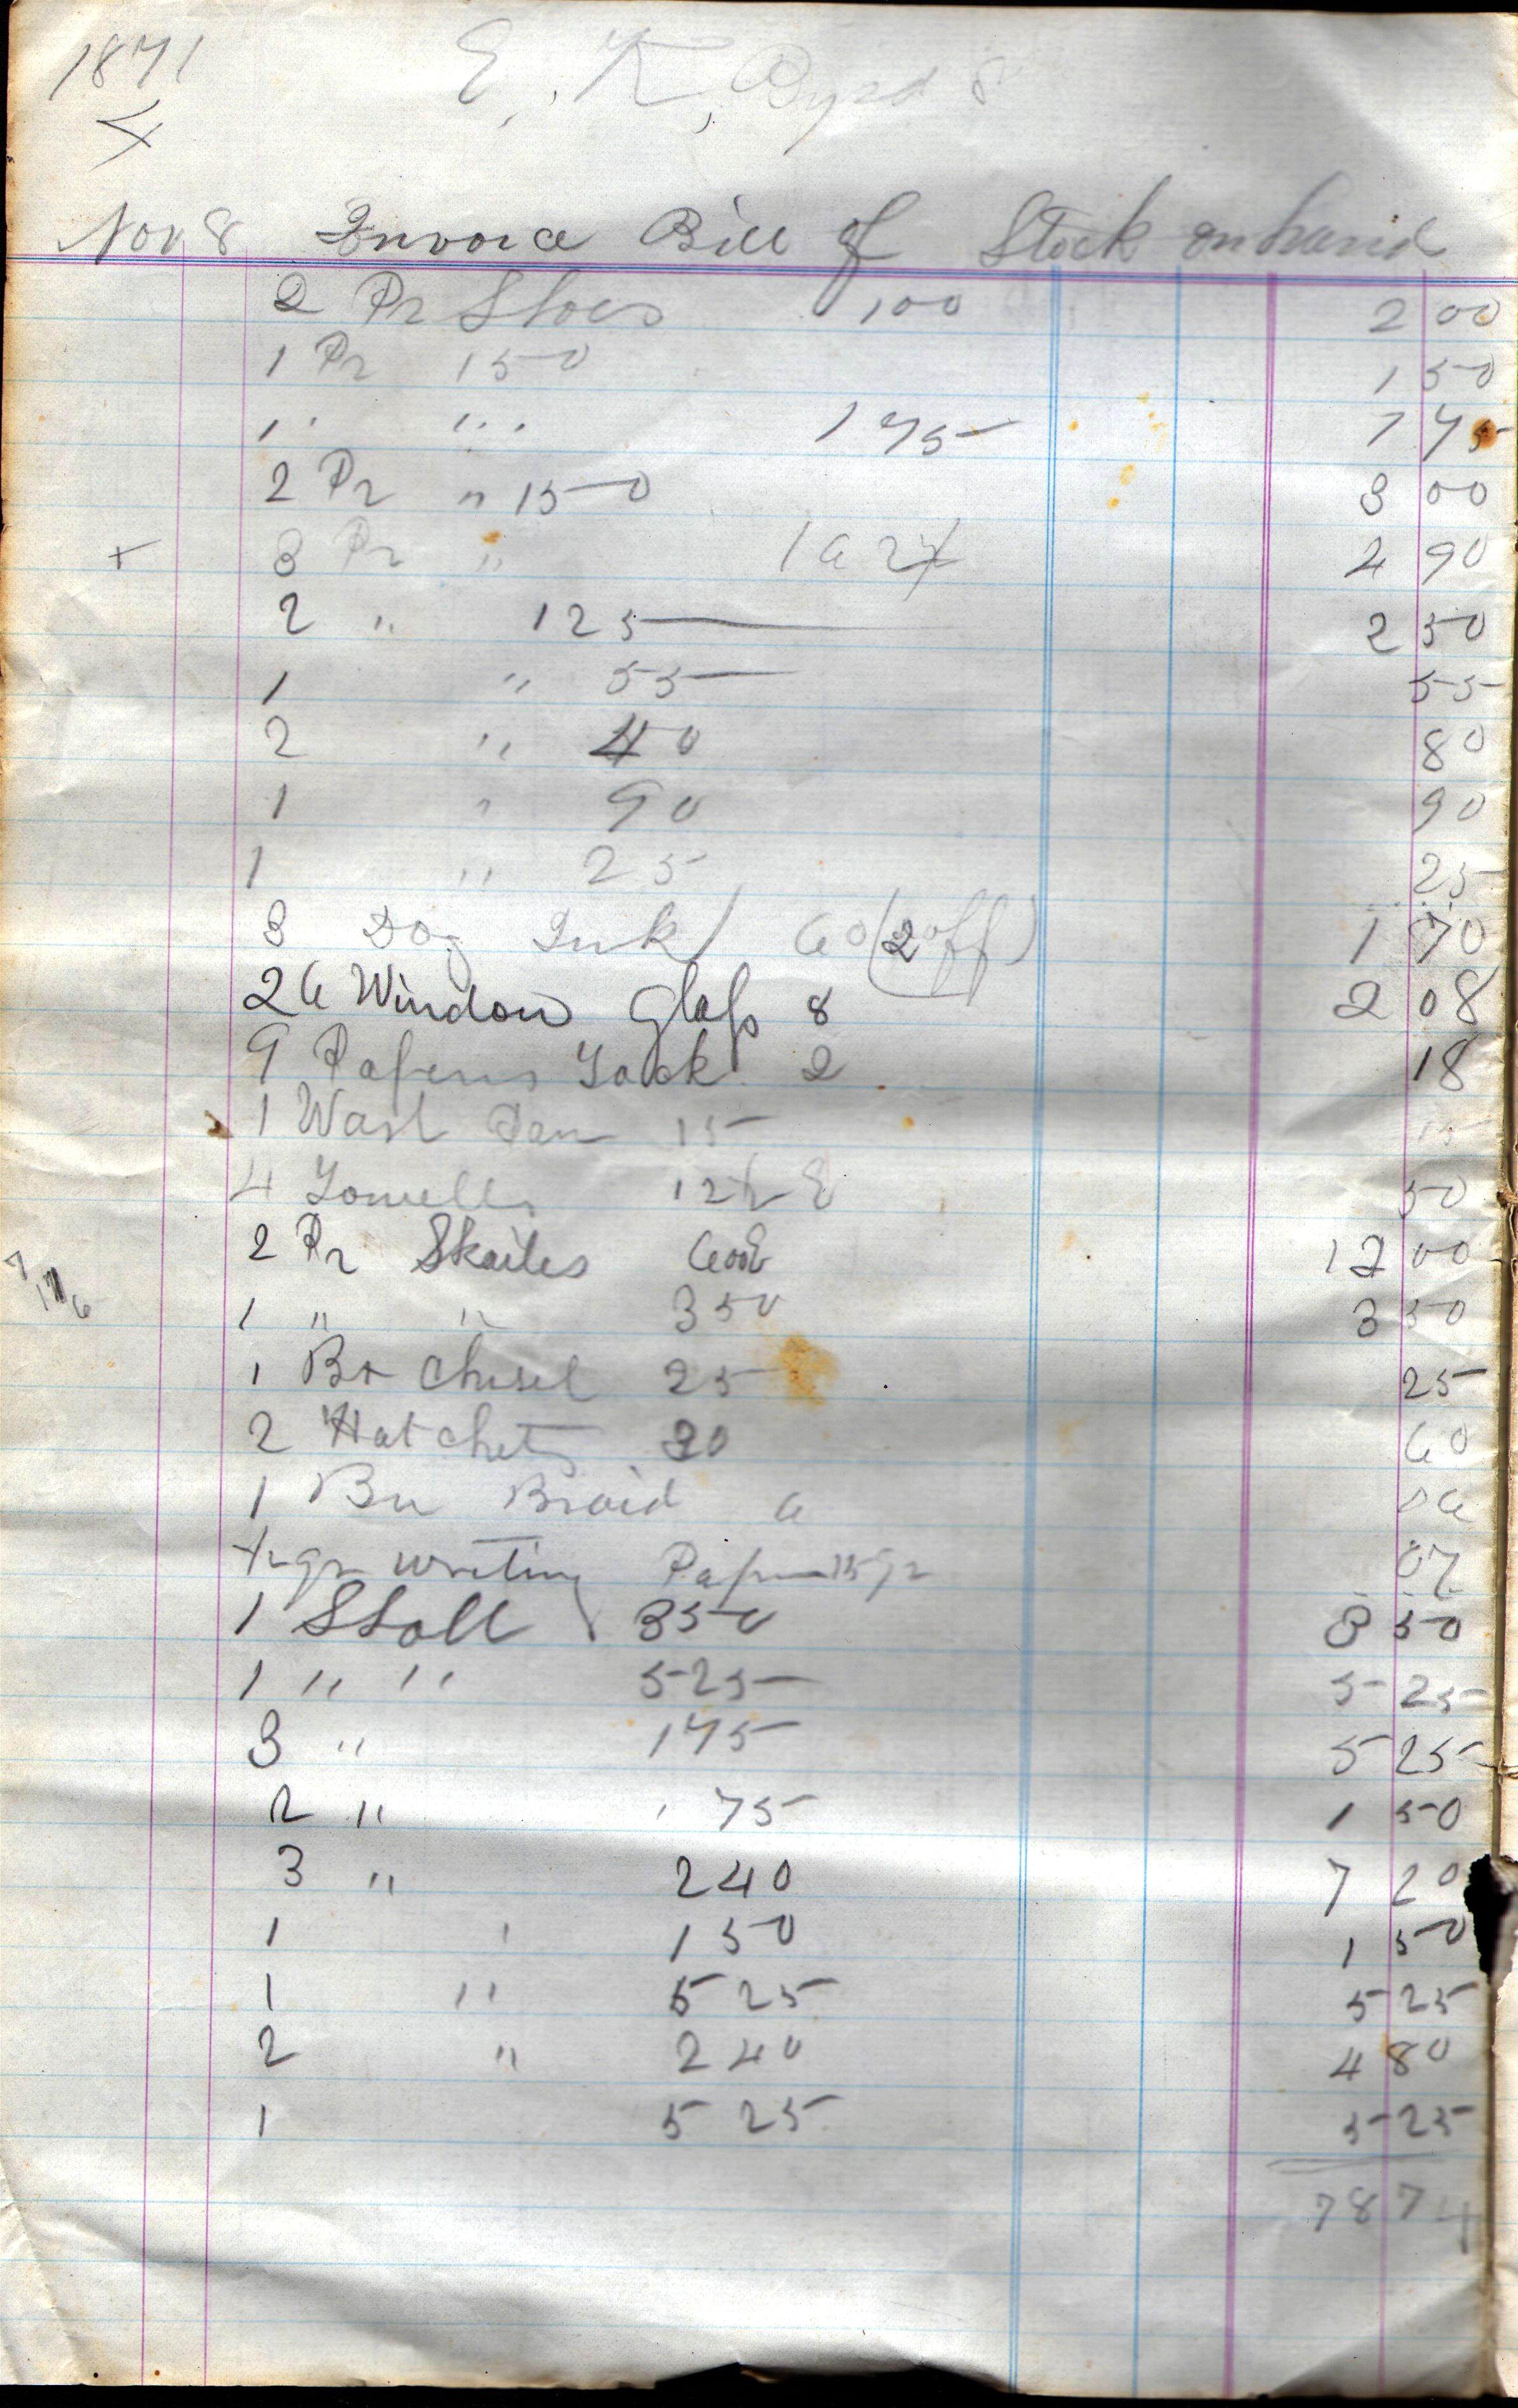 1871
E. K. Byrd s
X
Nov 8 Invoice Bill of Stock on hand
2 Pr Shoes 100 2 00
1 Pr 150 1 50
1 " " " 175 1 75
2 Pr " 150 3 00
+ 3 Pr " 2 90
2 " 125 2 50
1 " 55 55
2 " 40 80
1 " 90 90
1 " 25 25
3 Doz Ink 60 (2 off) 1 70
26 Window Glass 8 2 08
9 Papers Tack 2 18
1 Wash Pan 15 15
4 Towells 12½ 50
2 Pr Skailes 600 12 00
1 " " 350 3 50
1 Br Chisel 25 25
2 Hatchets 30 60
1 Bu Braid 6 06
½ qr writing Paper 15 qr 07
1 Shall 350 3 50
1 " " 525 5 25
3 " 175 5 25
2 " 75 1 50
3 " 240 7 20
1 " 150 1 50
1 " 525 5 25
2 " 240 4 80
1 525 5 25
78 74